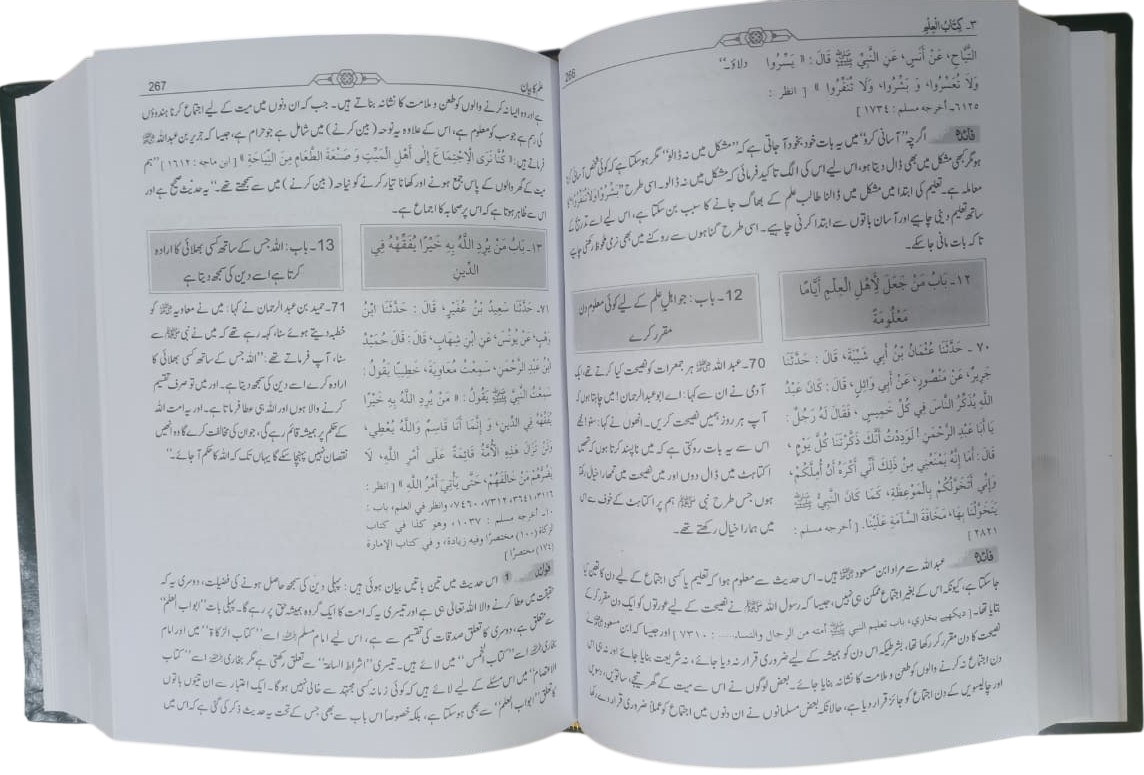 ٣۔ كِتَابُ الْعِلْمِ
266
التَّيَّاحِ، عَنْ أَنَسٍ، عَنِ النَّبِيِّ ﷺ قَالَ : « يَسِّرُوا
وَلَا تُعَسِّرُوا، وَ بَشِّرُوا، وَلَا تُنَفِّرُوا » [ انظر :
٦١٢٥۔ أخرجه مسلم : ١٧٣٤ ]
دلاؤ۔“
فائدہ اگرچہ ”آسانی کرو“ میں یہ بات خود بخود آ جاتی ہے کہ ”مشکل میں نہ ڈالو“ مگر ہو سکتا ہے کہ کوئی شخص آسانی کرتا
ہو مگر کبھی مشکل میں بھی ڈال دیتا ہو، اس لیے اس کی الگ تاکید فرمائی کہ مشکل میں نہ ڈالو۔ اسی طرح ”بَشِّرُوا وَلَا تُنَفِّرُوا“ کا
معاملہ ہے۔ تعلیم کی ابتدا میں مشکل میں ڈالنا طالب علم کے بھاگ جانے کا سبب بن سکتا ہے، اس لیے اسے تدریج کے
ساتھ تعلیم دینی چاہیے اور آسان باتوں سے ابتدا کرنی چاہیے۔ اسی طرح گناہوں سے روکنے میں بھی نرمی ملحوظ رکھنی چاہیے
تا کہ بات مانی جا سکے۔
١٢۔ بَابُ مَنْ جَعَلَ لِأَهْلِ الْعِلْمِ أَيَّامًا
مَعْلُومَةً
12۔ باب : جو اہلِ علم کے لیے کوئی معلوم دن
مقرر کرے
٧٠ ۔ حَدَّثَنَا عُثْمَانُ بْنُ أَبِي شَيْبَةَ، قَالَ : حَدَّثَنَا
جَرِيرٌ، عَنْ مَنْصُورٍ، عَنْ أَبِي وَائِلٍ، قَالَ : كَانَ عَبْدُ
اللَّهِ يُذَكِّرُ النَّاسَ فِي كُلِّ خَمِيسٍ ، فَقَالَ لَهُ رَجُلٌ :
يَا أَبَا عَبْدِ الرَّحْمَنِ ! لَوَدِدْتُ أَنَّكَ ذَكَّرْتَنَا كُلَّ يَوْمٍ ،
قَالَ : أَمَا إِنَّهُ يَمْنَعُنِي مِنْ ذَلِكَ أَنِّي أَكْرَهُ أَنْ أُمِلَّكُمْ،
وَإِنِّي أَتَخَوَّلُكُمْ بِالْمَوْعِظَةِ، كَمَا كَانَ النَّبِيُّ ﷺ
يَتَخَوَّلُنَا بِهَا، مَخَافَةَ السَّآمَةِ عَلَيْنَا. [ أخرجه مسلم :
٢٨٢١ ]
70۔ عبد اللہ ﷺ ہر جمعرات کو نصیحت کیا کرتے تھے، ایک
آدمی نے ان سے کہا : اے ابو عبد الرحمان ! میں چاہتا ہوں کہ
آپ ہر روز ہمیں نصیحت کریں۔ انھوں نے کہا : سنو! مجھے
اس سے یہ بات روکتی ہے کہ میں ناپسند کرتا ہوں کہ تمھیں
اکتاہٹ میں ڈال دوں اور میں نصیحت میں تمھارا خیال رکھتا
ہوں جس طرح نبی ﷺ ہم پر اکتاہٹ کے خوف سے اس
میں ہمارا خیال رکھتے تھے۔
فائدہ عبد اللہ سے مراد ابن مسعود ہیں۔ اس حدیث سے معلوم ہوا کہ تعلیم یا کسی اجتماع کے لیے دن کا تعین کیا
جا سکتا ہے، کیونکہ اس کے بغیر اجتماع ممکن ہی نہیں، جیسا کہ رسول اللہ ﷺ نے نصیحت کے لیے عورتوں کو ایک دن مقرر کر کے
بتایا تھا۔ [ دیکھیے بخاری، باب تعليم النبي ﷺ أمته من الرجال والنساء..... : ٧٣١٠ ] اور جیسا کہ ابن مسعود نے
نصیحت کا دن مقرر کر رکھا تھا، بشرطیکہ اس دن کو ہمیشہ کے لیے ضروری قرار نہ دیا جائے، نہ شریعت بنایا جائے اور نہ ہی اس
دن اجتماع نہ کرنے والوں کو طعن و ملامت کا نشانہ بنایا جائے۔ بعض لوگوں نے اس سے میت کے گھر تیجے، ساتویں، دسویں
اور چالیسویں کے دن اجتماع کو جائز قرار دیا ہے، حالانکہ بعض مسلمانوں نے ان دنوں میں اجتماع کو عملاً ضروری قرار دے رکھا
علم کا بیان
267
ہے اور وہ ایسا نہ کرنے والوں کو طعن و ملامت کا نشانہ بناتے ہیں۔ جب کہ ان دنوں میں میت کے لیے اجتماع کرنا ہندوؤں
کی رسم ہے جو سب کو معلوم ہے، اس کے علاوہ یہ نوحہ ( بین کرنے ) میں شامل ہے جو حرام ہے، جیسا کہ جریر بن عبد اللہ ﷺ
فرماتے ہیں: « كُنَّا نَرَى الْاِجْتِمَاعَ إِلَى أَهْلِ الْمَيِّتِ وَ صَنْعَةَ الطَّعَامِ مِنَ النِّيَاحَةِ » [ ابن ماجه : ١٦١٢ ] ”ہم
میت کے گھر والوں کے پاس جمع ہونے اور کھانا تیار کرنے کو نیاحہ ( بین کرنے ) میں سے سمجھتے تھے۔“ یہ حدیث صحیح ہے اور
اس سے ظاہر ہوتا ہے کہ اس پر صحابہ کا اجماع ہے۔
١٣۔ بَابُ مَنْ يُرِدِ اللَّهُ بِهِ خَيْرًا يُفَقِّهْهُ فِي
الدِّينِ
13۔ باب : اللہ جس کے ساتھ کسی بھلائی کا ارادہ
کرتا ہے اسے دین کی سمجھ دیتا ہے
٧١۔ حَدَّثَنَا سَعِيدُ بْنُ عُفَيْرٍ، قَالَ : حَدَّثَنَا ابْنُ
وَهْبٍ، عَنْ يُونُسَ، عَنِ ابْنِ شِهَابٍ، قَالَ: قَالَ حُمَيْدُ
ابْنُ عَبْدِ الرَّحْمَنِ، سَمِعْتُ مُعَاوِيَةَ، خَطِيبًا يَقُولُ :
سَمِعْتُ النَّبِيَّ ﷺ يَقُولُ : « مَنْ يُرِدِ اللَّهُ بِهِ خَيْرًا
يُفَقِّهْهُ فِي الدِّينِ، وَ إِنَّمَا أَنَا قَاسِمٌ وَاللَّهُ يُعْطِي،
وَلَنْ تَزَالَ هَذِهِ الْأُمَّةُ قَائِمَةً عَلَى أَمْرِ اللَّهِ، لَا
يَضُرُّهُمْ مَنْ خَالَفَهُمْ، حَتَّى يَأْتِيَ أَمْرُ اللَّهِ » [ انظر :
٣١١٦، ٣٦٤١، ٧٣١٢، ٧٤٦٠، وانظر في العلم، باب :
١٠۔ أخرجه مسلم : ١٠٣٧، وهو كذا في كتاب
الزكاة (١٠٠) مختصرًا وفيه زيادة، و في كتاب الإمارة
(١٧٤) مختصرًا ]
71۔ حمید بن عبد الرحمان نے کہا : میں نے معاویہ کو
خطبہ دیتے ہوئے سنا، کہہ رہے تھے کہ میں نے نبی ﷺ سے
سنا، آپ فرماتے تھے : ”اللہ جس کے ساتھ کسی بھلائی کا
ارادہ کرے اسے دین کی سمجھ دیتا ہے۔ اور میں تو صرف تقسیم
کرنے والا ہوں اور اللہ ہی عطا فرماتا ہے۔ اور یہ امت اللہ
کے حکم پر ہمیشہ قائم رہے گی، جو ان کی مخالفت کرے گا وہ انھیں
نقصان نہیں پہنچا سکے گا یہاں تک کہ اللہ کا حکم آ جائے۔“
فوائد ① اس حدیث میں تین باتیں بیان ہوئی ہیں : پہلی دین کی سمجھ حاصل ہونے کی فضیلت، دوسری یہ کہ
حقیقت میں عطا کرنے والا اللہ تعالیٰ ہی ہے اور تیسری یہ کہ امت کا ایک گروہ ہمیشہ حق پر رہے گا۔ پہلی بات ”ابواب العلم“
سے متعلق ہے، دوسری کا تعلق صدقات کی تقسیم سے ہے، اس لیے امام مسلم اسے ”کتاب الزکاۃ“ میں اور امام
بخاری اسے ”کتاب الخمس“ میں لائے ہیں۔ تیسری ”اشراط الساعۃ“ سے تعلق رکھتی ہے مگر بخاری اسے ”کتاب
الاعتصام“ میں اس مسئلے کے لیے لائے ہیں کہ کوئی زمانہ کسی مجتہد سے خالی نہیں ہو گا۔ ایک اعتبار سے ان تینوں باتوں
کا تعلق ”ابواب العلم“ سے بھی ہو سکتا ہے، بلکہ خصوصاً اس باب سے بھی جس کے تحت یہ حدیث ذکر کی گئی ہے کہ اس میں